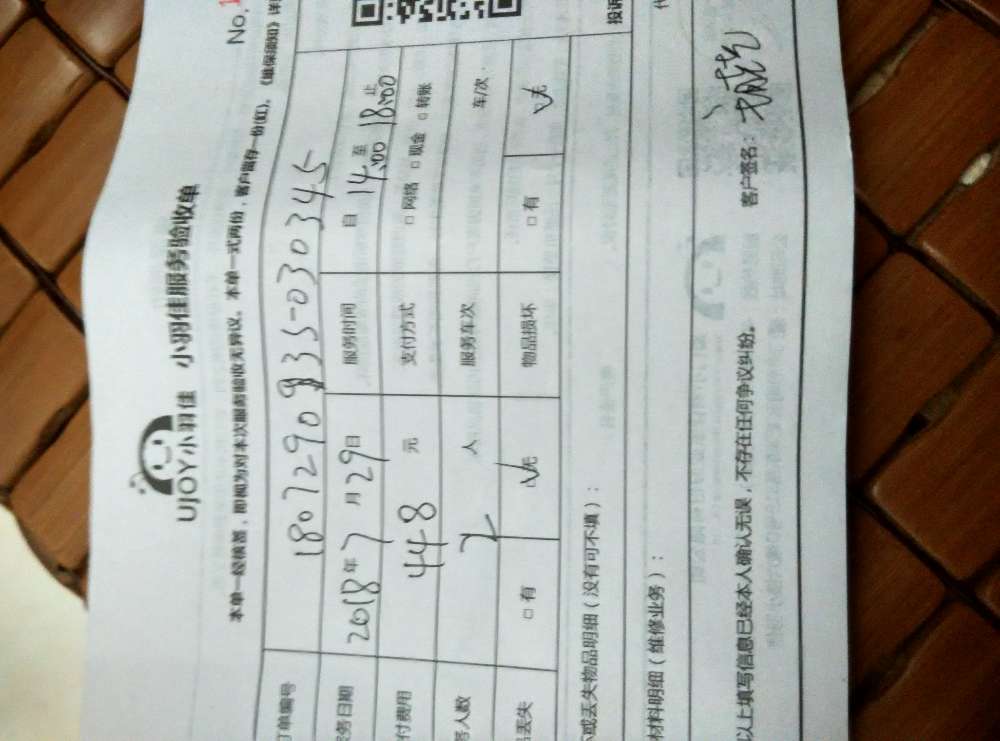 UJOY小羽佳 小羽佳服务验收单
No.1
本单一经核签，即视为对本次服务验收无异议。本单一式两份，客户留存一份(红)，《维保须知》详
订单编号 18072909335-030345
服务日期 2018年7月29日 服务时间 自14:00至18:00止
付费用 448元 支付方式 □网络 □现金 □转账
务人数 2人 服务车次 车/次
品丢失 □有 ☑无 物品损坏 □有 ☑无
坏或丢失物品明细（没有可不填）： 投诉
材料明细（维修业务）：
以上填写信息已经本人确认无误，不存在任何争议纠纷。 客户签名：